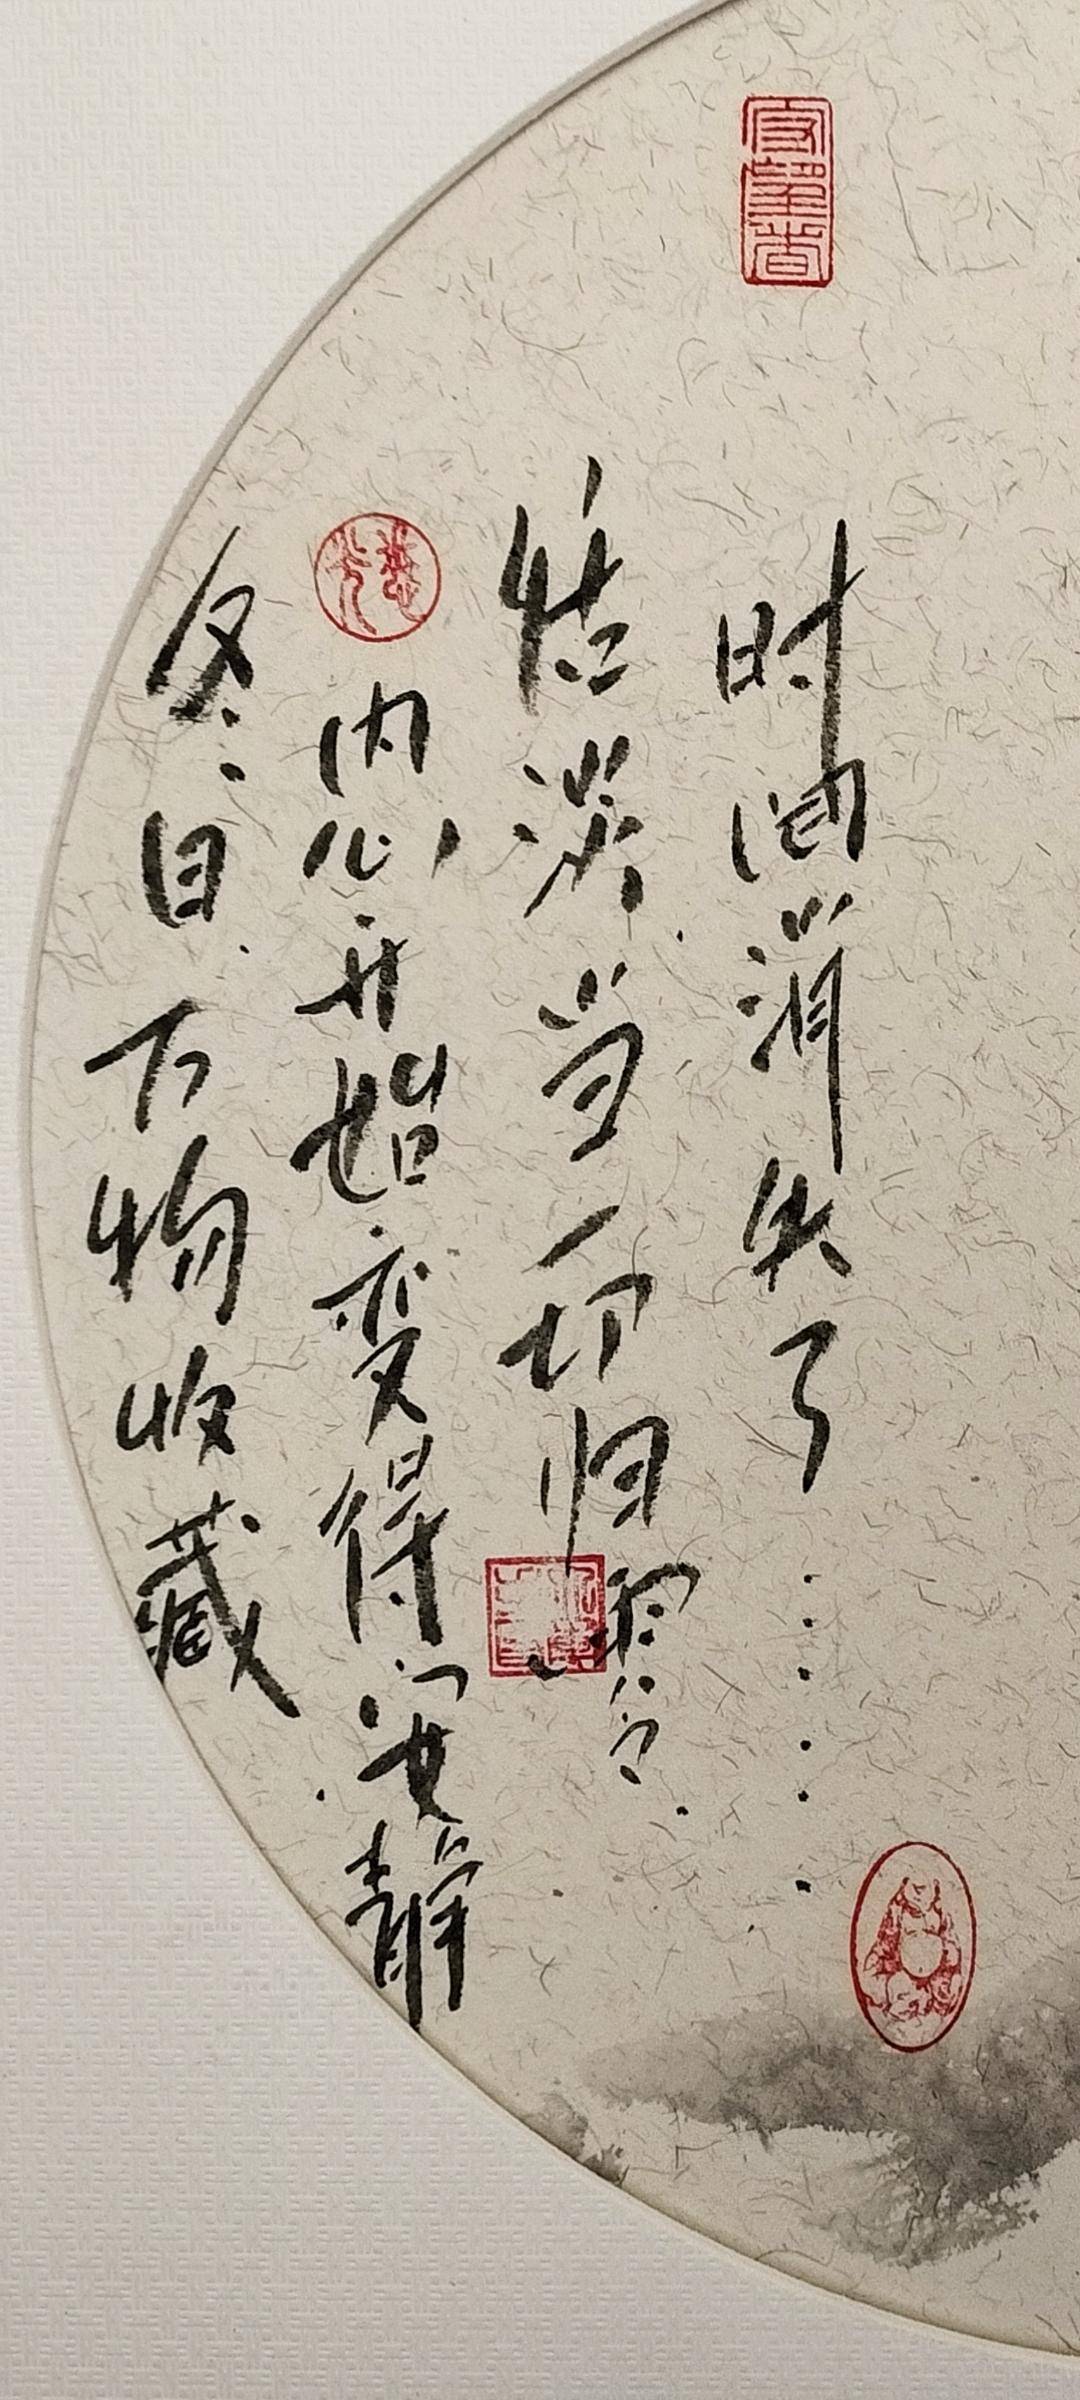 冬日.万物收藏.
内心开始变得安静
恬淡.当一切归零.
时间消失了……